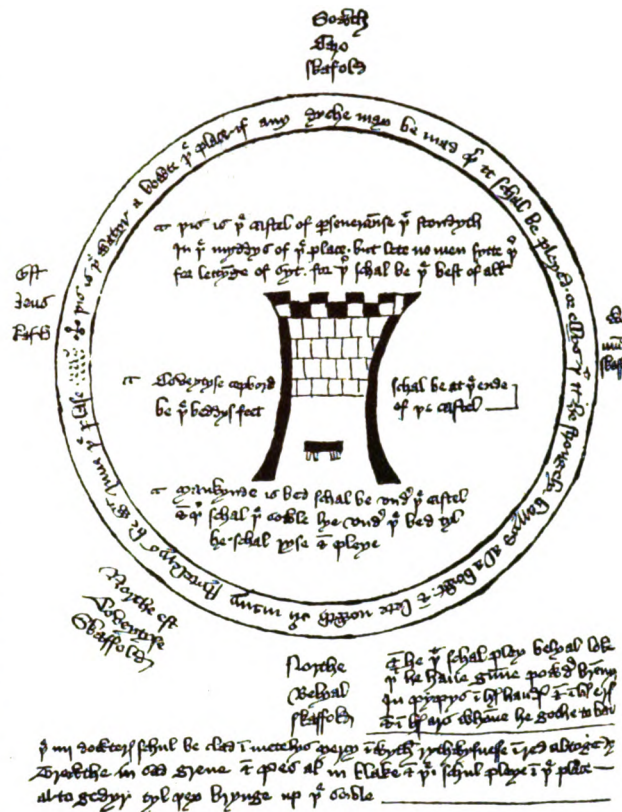 Sowth
Caro
skafold
þis is þe watyr a bowte þe place if any dyche may be mad þer it schal be pleyed or ellys þt it be stronglye barryd al a bowt & lete nowth ouyr many stytelerys be wtinne þe plase
þis is þe castel of perseueraunse þt stondyth
In þe myddys of þe place but lete no men sytte þer
for lettynge of syt for þer schal be þe best of all
Est
deus
skafold
Coveytyse copbord
be þe beddys feet
schal be at þe ende
of þe castel
Mankynde is bed schal be vndyr þe castel
& þer schal þe sowle lye vndyr þe bed tyl
he schal ryse & pleye
Northe est
Coveytyse
Skaffold
Northe
Belyal
skaffold
& he þt schal pley belyal loke
þt he haue gunne powdyr brennyng
In pypys in hys handys & in hys erys
& in hys ars whanne he gothe to bat
þe iiij dowterys schul be clad in metelys mercy in wyth rythwysnesse in red altogedyr
Trewthe in sad grene & pes al in blake & þei schul pleye in þe place
al to gedyr tyl þey brynge up þe sowle